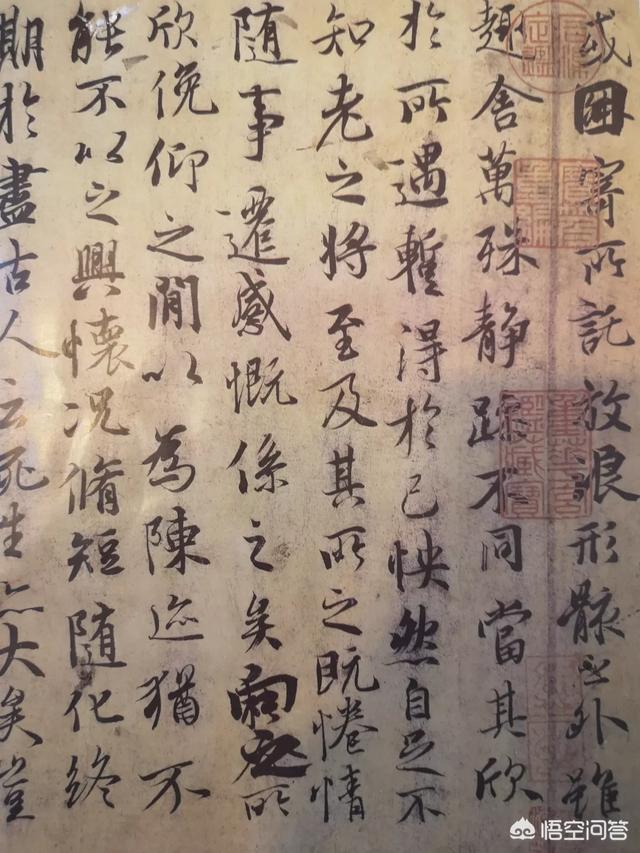 或因寄所託放浪形骸之外雖
趣舍萬殊静躁不同當其欣
於所遇暫得於己怏然自足不
知老之将至及其所之既惓情
随事遷感慨係之矣向之所
欣俛仰之閒以為陳迹猶不
能不以之興懷况脩短随化終
期於盡古人云死生亦大矣豈
悟空问答